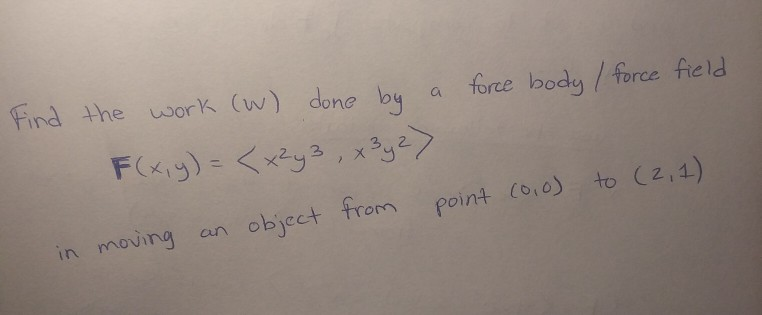 Find the work (W) done by a force body / force field
F(x,y) = <x²y³, x³y²>
in moving an object from point (0,0) to (2,1)